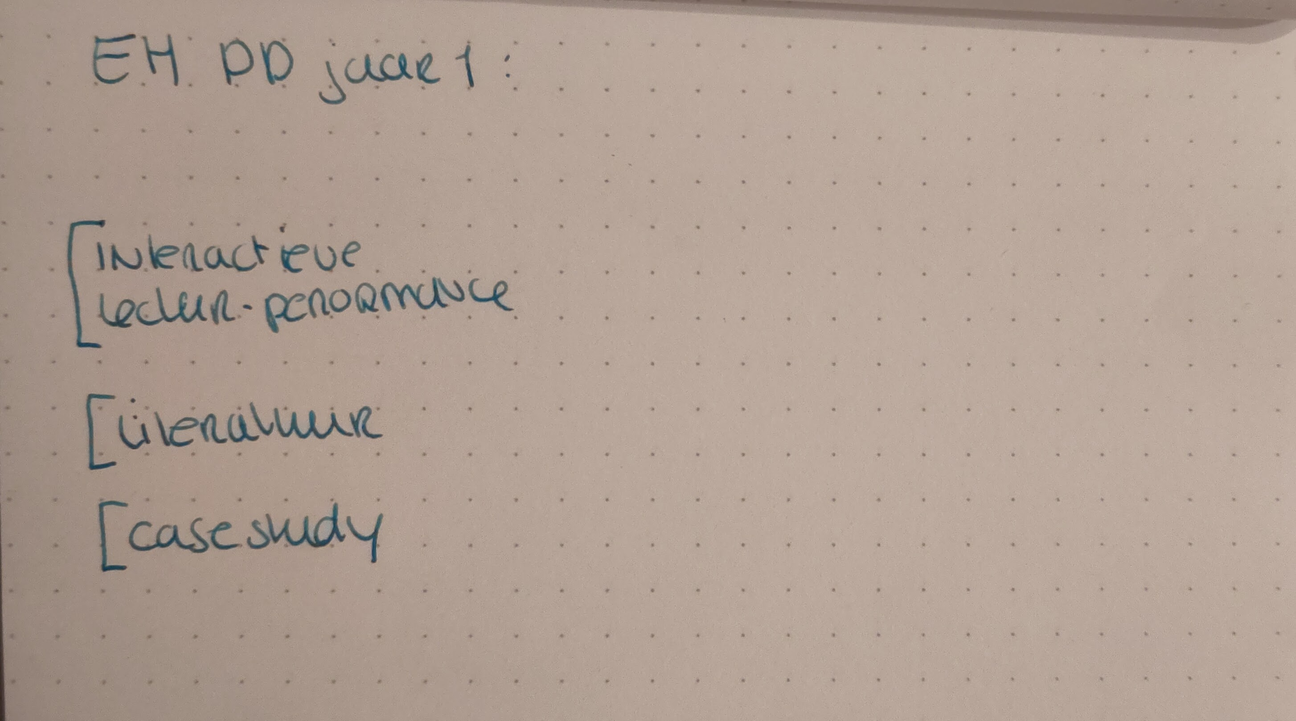 EH DD jaar 1 :
interactieve
lectur-perormance
literatuur
casestudy